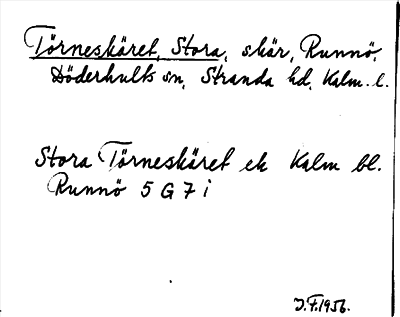 Törneskäret, Stora, skär, Runnö,
Döderhults sn, Stranda hd, Kalm. l.
Stora Törneskäret ek Kalm bl.
Runnö 5 G 7 i
J.F. 1956.